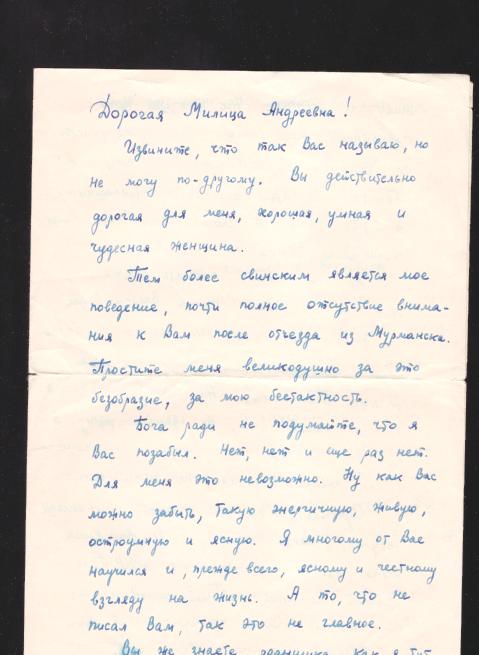 Дорогая Милица Андреевна!
Извините, что так Вас называю, но
не могу по-другому. Вы действительно
дорогая для меня, хорошая, умная и
чудесная женщина.
Тем более свинским является мое
поведение, почти полное отсутствие внима-
ния к Вам после отъезда из Мурманска.
Простите меня великодушно за это
безобразие, за мою бестактность.
Бога ради не подумайте, что я
Вас позабыл. Нет, нет и еще раз нет.
Для меня это невозможно. Ну как Вас
можно забыть, такую энергичную, живую,
остроумную и ясную. Я многому от Вас
научился и, прежде всего, ясному и честному
взгляду на жизнь. А то, что не
писал Вам, так это не главное.
Вы же знаете, как я тут